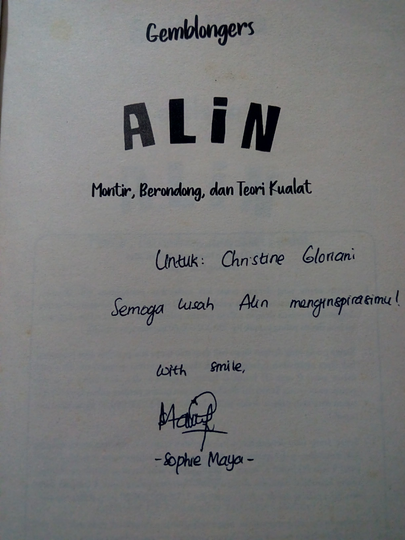 Gemblongers
ALiN
Montir, Berondong, dan Teori Kualat
Untuk: Christine Gloriani
Semoga kisah Alin menginspirasimu!
With smile,
-Sophie Maya-